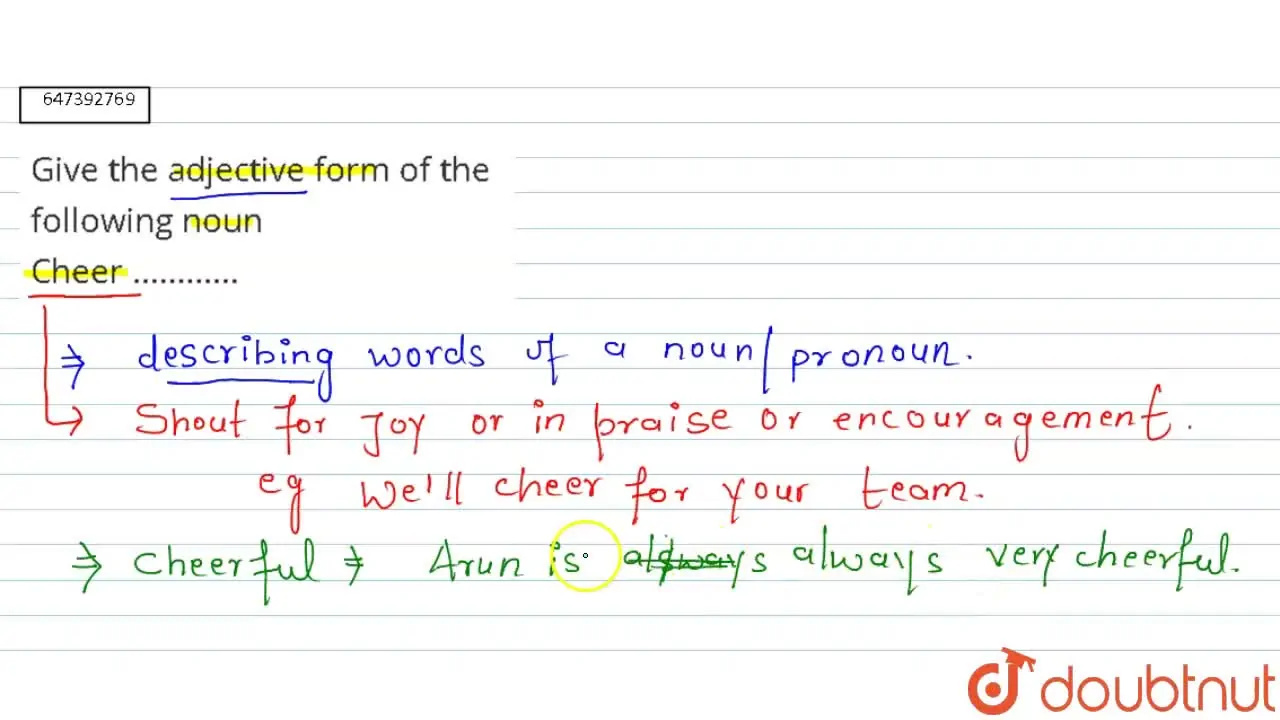 647392769
Give the adjective form of the
following noun
Cheer ............
⇒ describing words of a noun/pronoun.
↳ Shout for Joy or in praise or encouragement.
eg We'll cheer for your team.
⇒ Cheerful ⇒ Arun is always very cheerful.
doubtnut